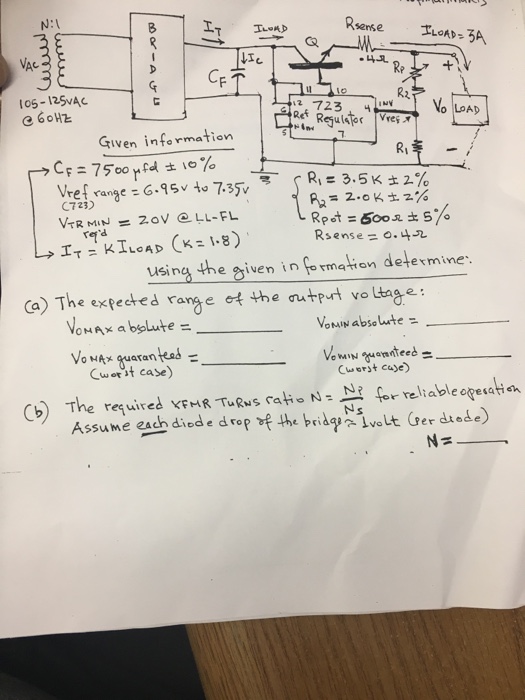 N:1
VAC
105-125VAC
@ 60HZ
BRIDGE
IT
ILOAD
IC
CF
Q
Rsense
.4Ω
ILOAD = 3A
RP
R2
R1
+
Vo
LOAD
-
11
10
12 723
6 Ref Regulator
5
4
INV
Vres
7
Given information
CF = 7500 μfd ± 10%
Vref range = 6.95v to 7.35v
(723)
VTR MIN = 20V @ LL-FL
req'd
IT = K ILOAD (K = 1.8)
R1 = 3.5K ± 2%
R2 = 2.0K ± 2%
Rpot = 500Ω ± 5%
Rsense = 0.4Ω
Using the given information determine:
(a) The expected range of the output voltage:
VoMAX absolute =
VoMIN absolute =
VoMAX guaranteed =
(worst case)
VoMIN guaranteed =
(worst case)
(b) The required XFMR TURNS ratio N = NP/NS for reliable operation
Assume each diode drop of the bridge ≈ 1volt (per diode)
N =